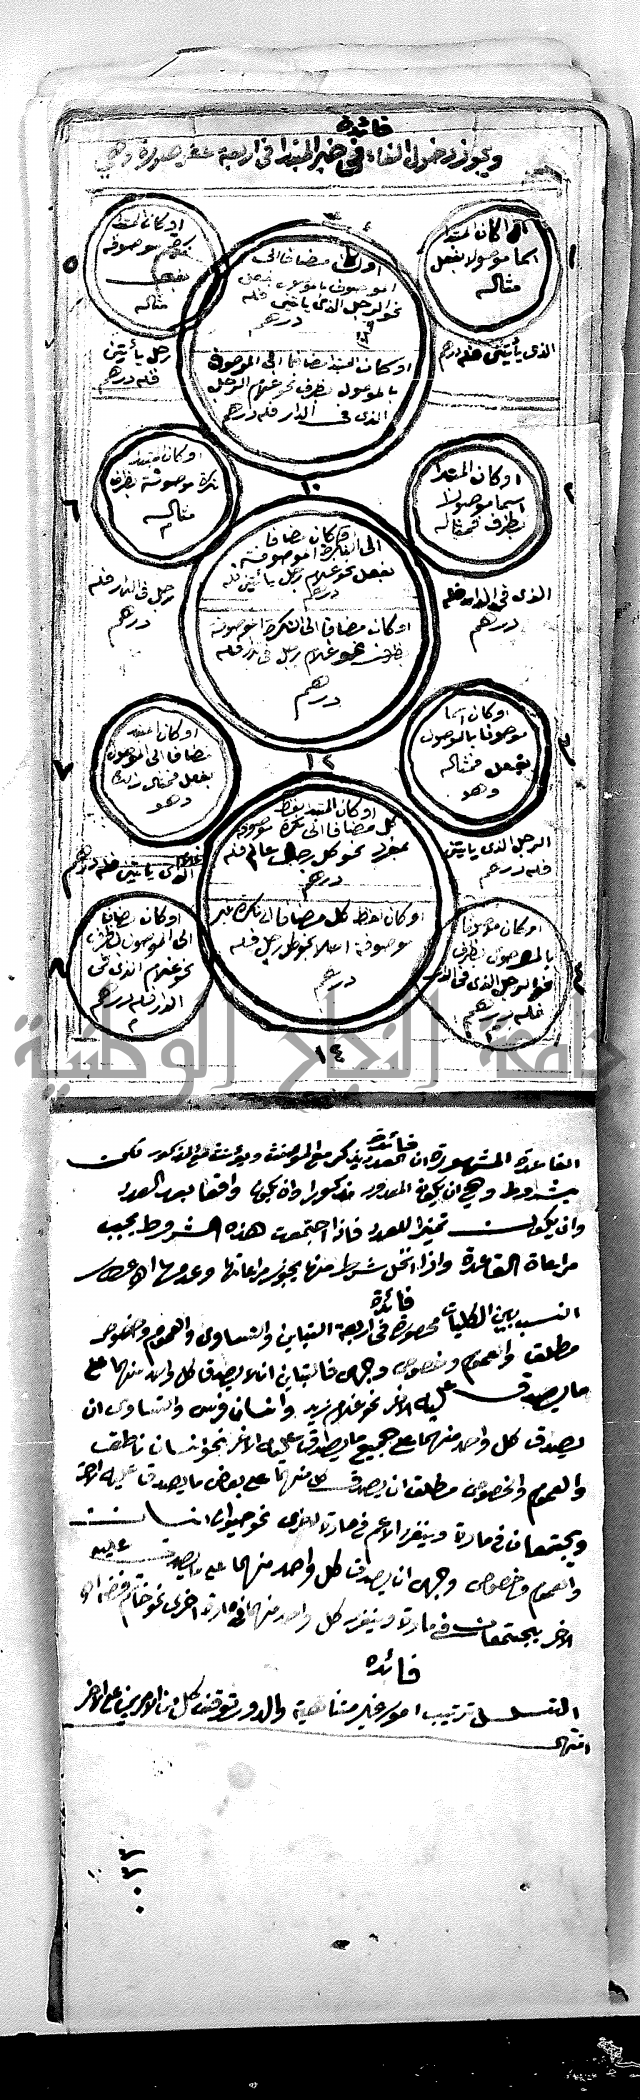 فائدة
ويجوز دخول الفاء في خبر المبتدا في اربعة عشر صورة وهي
١
اذا كان المبتدا
اسما موصولا بفعل
مثاله
الذي يأتيني فله درهم
٢
او كان المبتدا
اسما موصولا
بظرف فمثاله
الذي في الدار فله
درهم
او كان اسما
موصوفا بالموصول
بفعل فمثاله
وهو
الرجل الذي يأتيني
فله درهم
٤
او كان موصوفا
بالموصول بظرف
نحو الرجل الذي في الدار
فله درهم
٥
او كان المبتدا
نكرة موصوفة
بفعل
مثاله
رجل يأتيني
فله درهم
٦
او كان المبتدا
نكرة موصوفة بظرف
مثاله
رجل في الدار فله
درهم
٧
او كان المبتدا
مضافا الى الموصول
بفعل فمثاله
وهو
الذي يأتيني فله درهم
٨
او كان مضافا
الى الموصول بظرف
نحو غلام الذي في
الدار فله درهم
او كان مضافا الى
الموصوف بالموصول بفعل
نحو الرجل الذي يأتيني فله
درهم
او كان المبتدا مضافا الى الموصوف
بالموصول بظرف نحو غلام الرجل
الذي في الدار فله درهم
١٠
او كان مضافا
الى النكرة الموصوفة
بفعل نحو غلام رجل يأتيني فله
درهم
او كان مضافا الى النكرة الموصوفة
بظرف نحو غلام رجل في الدار فله
درهم
١٢
او كان المبتدا بلفظ
كل مضافا الى نكرة موصوفة
بمفرد نحو كل رجل عالم فله
درهم
او كان لفظ كل مضافا الى نكرة غير
موصوفة اصلا نحو كل رجل فله
درهم
١٤
جامعة النجاح الوطنية
فائدة
القاعدة المشهورة ان العدد يذكر مع المؤنث ويؤنث مع المذكر لكن
بشروط وهي ان يكون المعدود مذكورا وان يكون واقعا بعد العدد
وان يكون تميزا للعدد فاذا اجتمعت هذه الشروط يجب
مراعاة القاعدة واذا اختل شرط منها يجوز مراعاتها وعدمها
فائدة
النسب بين الكليات محصورة في اربعة التباين والتساوي والعموم وخصوص
مطلق والعموم وخصوص وجهي فالتباين ان لا يصدق كل واحد منهما على
ما يصدق عليه الاخر نحو غلام زيد وانسان فرس والتساوي ان
يصدق كل واحد منهما على جميع ما يصدق عليه الاخر نحو انسان ناطق
والعموم والخصوص مطلق ان يصدق كل منهما على بعض ما يصدق عليه الاخر
ويجتمعان في مادة وينفرد الاعم في مادة اخرى نحو حيوان انسان
والعموم وخصوص وجهي ان يصدق كل واحد منهما على ما يصدق عليه
الاخر يجتمعان في مادة وينفرد كل واحد منهما في مادة اخرى نحو خاتم فضة
فائدة
التسلسل ترتيب امور غير متناهية والدور توقف كل من الامرين على الاخر
انتهى